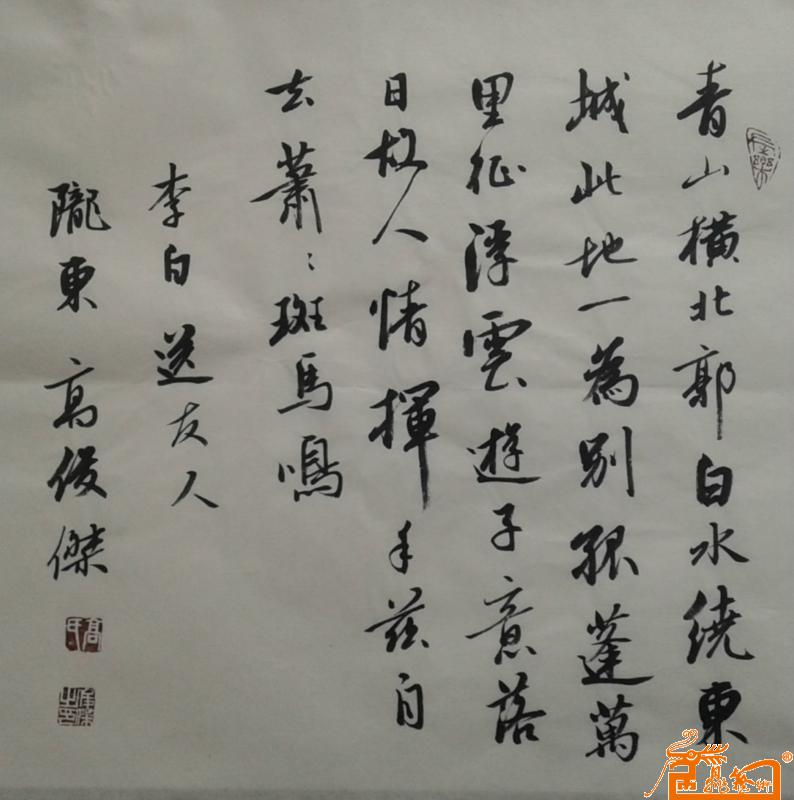 青山橫北郭白水繞東
城此地一為別孤蓬萬
里征浮雲遊子意落
日故人情揮手茲自
去蕭〻斑馬鳴
李白送友人
隴東高俊傑